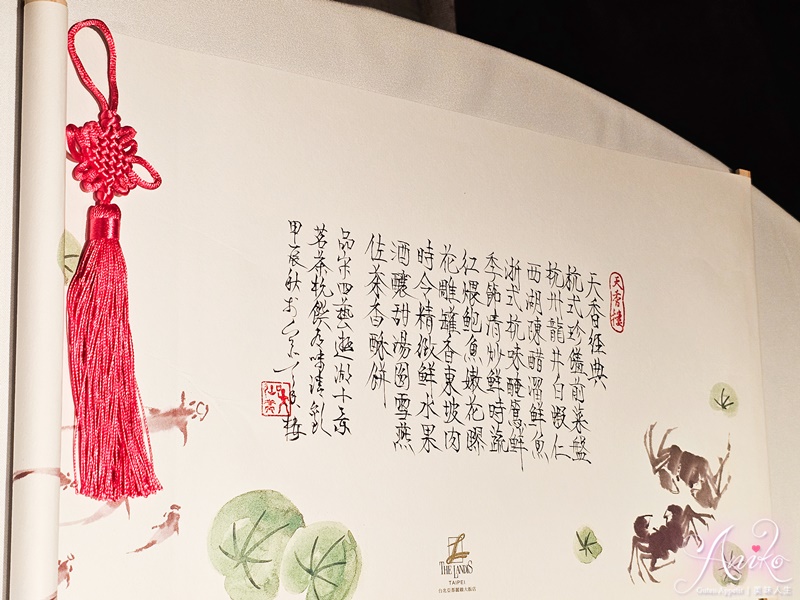 天香樓
天香經典
杭式珍饈前菜盤
杭州龍井白蝦仁
西湖陳醋溜鮮魚
浙式杭味醃篤鮮
季節清炒鮮時蔬
紅煨鮑魚嫩花膠
花雕罐香東坡肉
時令精緻鮮水果
酒釀甜湯圓雪燕
佐茶香酥餅
品宋四藝遊湖十景
茗茶杭饌
甲辰秋
THE LANDIS
TAIPEI
台北亞都麗緻大飯店
Aniko
美味人生